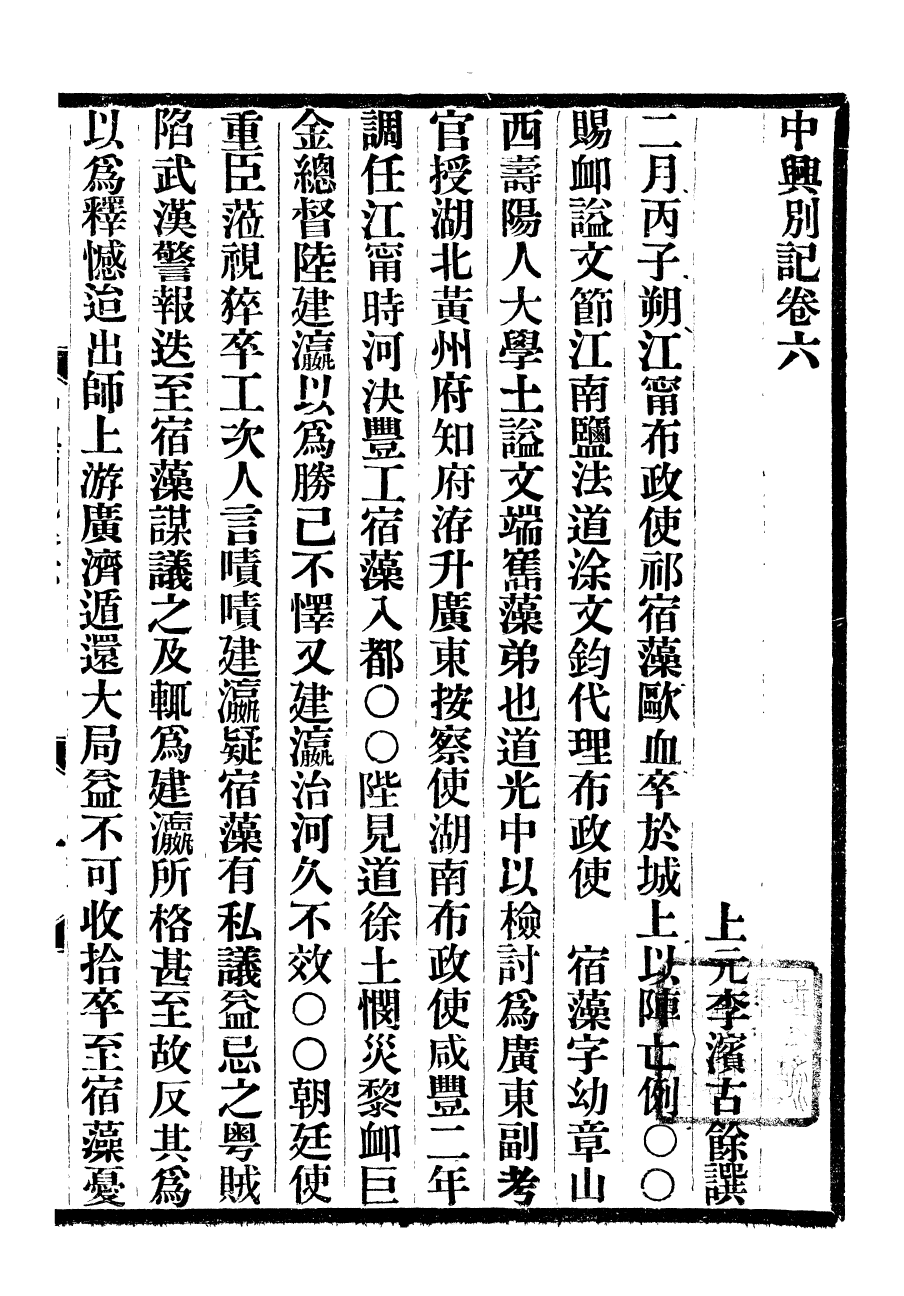 中興別記卷六
上元李濱古餘譔
二月丙子朔江甯布政使祁宿藻歐血卒於城上以陣亡例〇〇
賜卹諡文節江南鹽法道涂文鈞代理布政使　宿藻字幼章山
西壽陽人大學士諡文端寯藻弟也道光中以檢討爲廣東副考
官授湖北黃州府知府洊升廣東按察使湖南布政使咸豐二年
調任江甯時河決豐工宿藻入都〇〇陛見道徐土憫災黎卹巨
金總督陸建瀛以爲勝己不懌又建瀛治河久不效〇〇朝廷使
重臣蒞視猝卒工次人言嘖嘖建瀛疑宿藻有私議益忌之粵賊
陷武漢警報迭至宿藻謀議之及輒爲建瀛所格甚至故反其爲
以爲釋憾迨出師上游廣濟遁還大局益不可收拾卒至宿藻憂